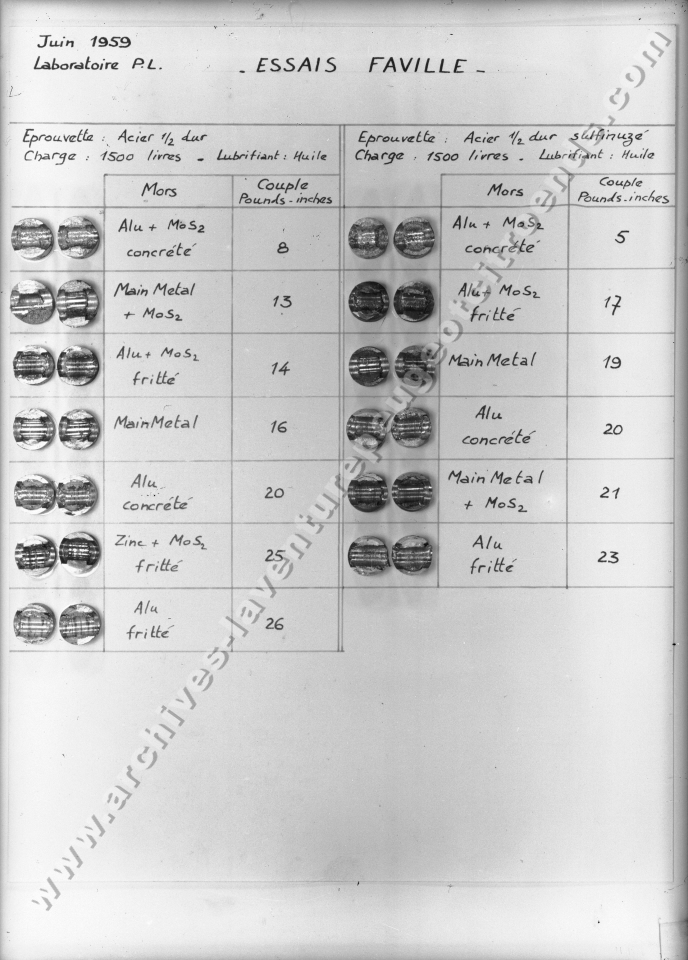 Juin 1959
Laboratoire P.L.
- ESSAIS FAVILLE -
Eprouvette : Acier 1/2 dur
Charge : 1500 livres - Lubrifiant : Huile
Mors
Couple
Pounds-inches
Alu + MoS2
concrété
8
Main Metal
+ MoS2
13
Alu + MoS2
fritté
14
Main Metal
16
Alu
concrété
20
Zinc + MoS2
fritté
25
Alu
fritté
26
Eprouvette : Acier 1/2 dur sulfinuzé
Charge : 1500 livres - Lubrifiant : Huile
Mors
Couple
Pounds-inches
Alu + MoS2
concrété
5
Alu + MoS2
fritté
17
Main Metal
19
Alu
concrété
20
Main Metal
+ MoS2
21
Alu
fritté
23
www.archives-laventurepeugeotcitroends.com